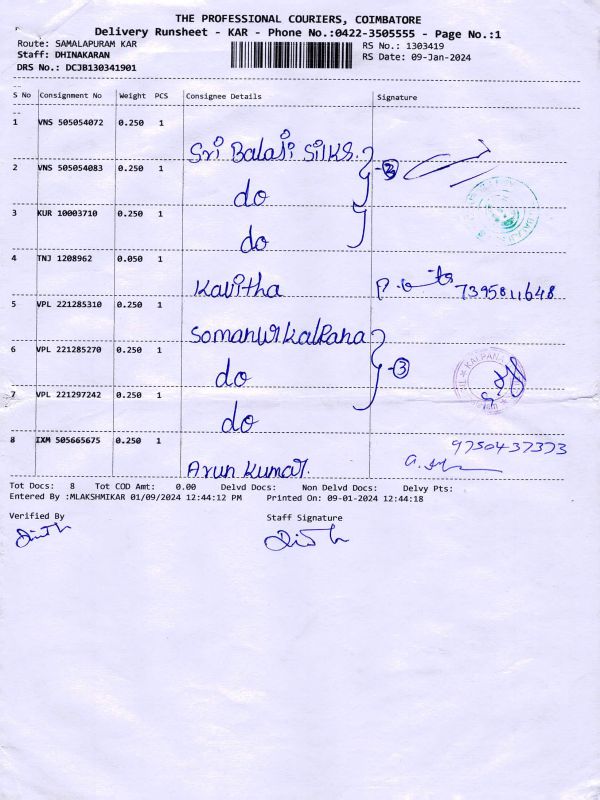 THE PROFESSIONAL COURIERS, COIMBATORE
Delivery Runsheet - KAR - Phone No.:0422-3505555 - Page No.:1
Route: SAMALAPURAM KAR RS No.: 1303419
Staff: DHINAKARAN RS Date: 09-Jan-2024
DRS No.: DCJB130341901
S No Consignment No Weight PCS Consignee Details Signature
1 VNS 505054072 0.250 1
Sri Balaji Silks.
2 VNS 505054083 0.250 1
do
3 KUR 10003710 0.250 1
do
4 TNJ 1208962 0.050 1
Kavitha 7395811648
5 VPL 221285310 0.250 1
Kalpana
6 VPL 221285270 0.250 1
do -3
7 VPL 221297242 0.250 1
do
KALPANA
8 IXM 505665675 0.250 1
9750437373
Arun Kumar.
Tot Docs: 8 Tot COD Amt: 0.00 Delvd Docs: Non Delvd Docs: Delvy Pts:
Entered By :MLAKSHMIKAR 01/09/2024 12:44:12 PM Printed On: 09-01-2024 12:44:18
Verified By Staff Signature